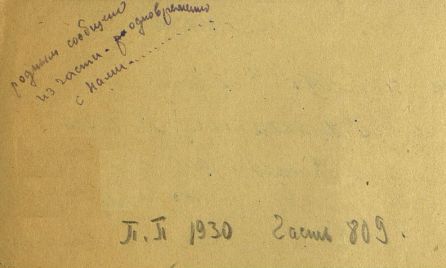 родным сообщено
из части - одновременно
с нами...............
П.П 1930 Часть 809.